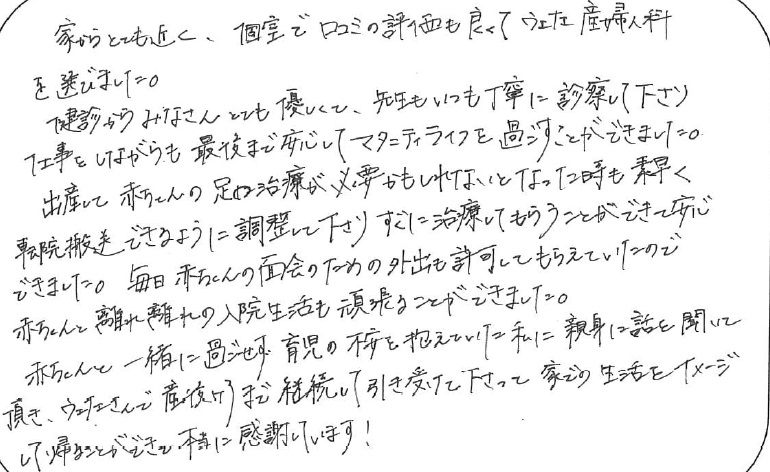 家からとても近く、個室で口コミの評価も良くてウエナ産婦人科
を選びました。
健診からみなさんとても優しくて、先生もいつも丁寧に診察して下さり
仕事をしながらも最後まで安心してマタニティライフを過ごすことができました。
出産して赤ちゃんの足の治療が必要かもしれないとなった時も素早く
転院搬送できるように調整して下さりすぐに治療してもらうことができて安心
できました。毎日赤ちゃんの面会のための外出も許可してもらえていたので
赤ちゃんと離れ離れの入院生活も頑張ることができました。
赤ちゃんと一緒に過ごせず育児の不安を抱えていた私に親身に話を聞いて
頂き、さんで産後ケアまで継続して引き受けて下さって家での生活をイメージ
して帰ることができて本当に感謝しています!